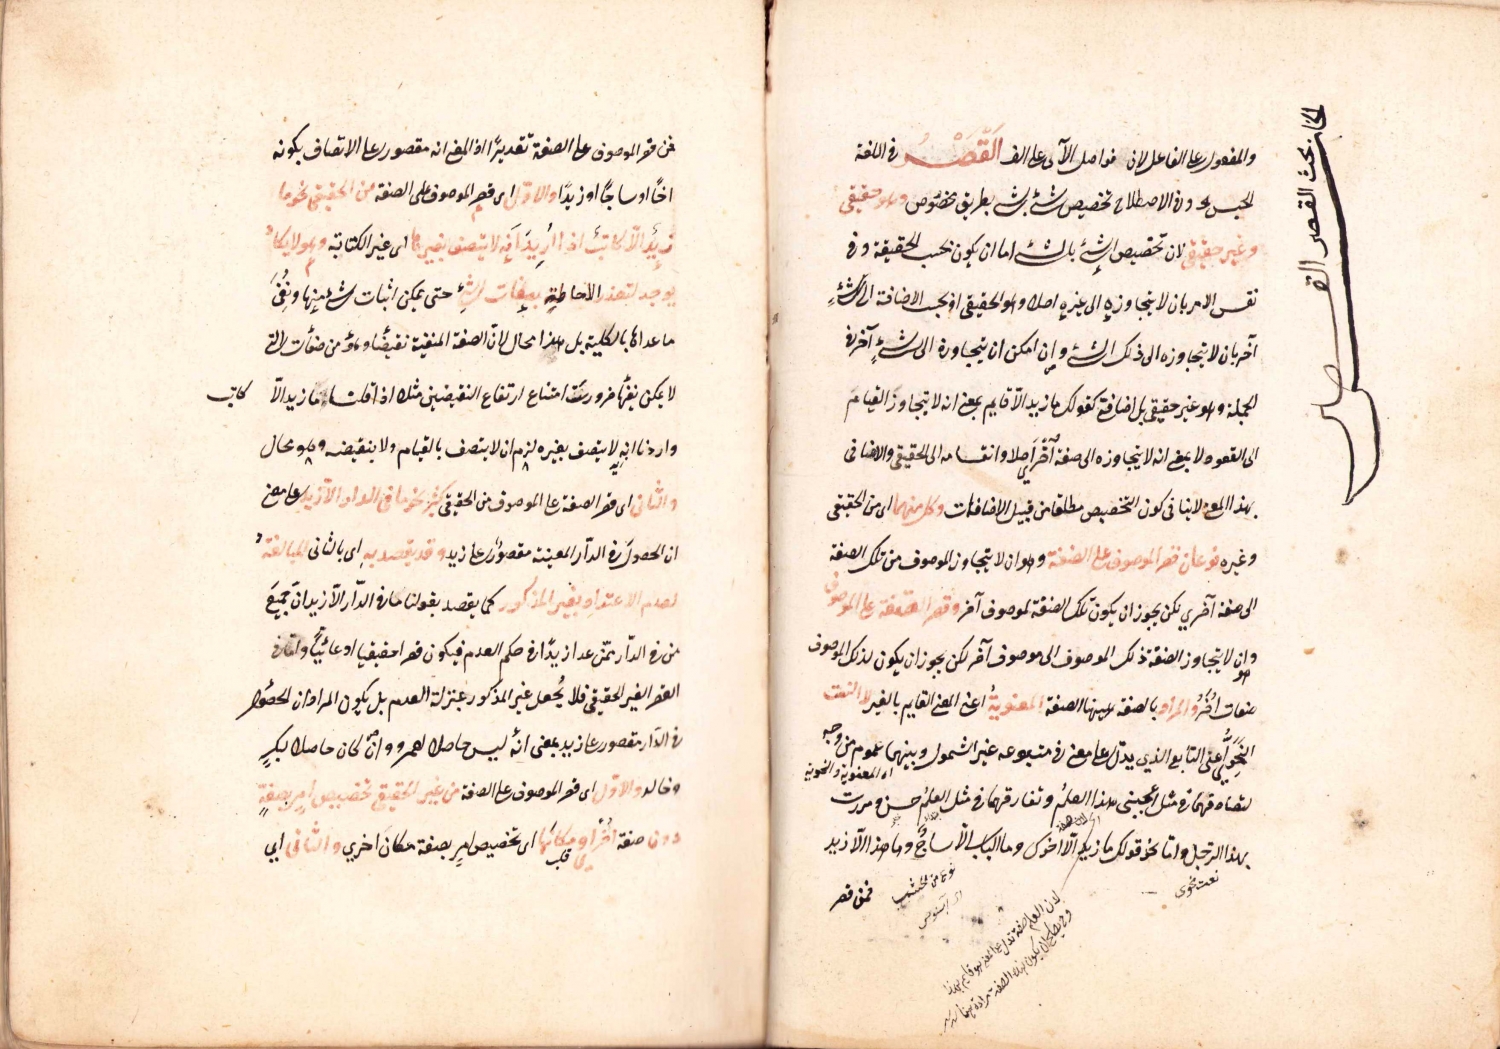 والمفعول على الفاعل لان فواصل الآى على الف القَصْرُ فى اللغة
الحبس وفى الاصطلاح تخصيص شئ بشئ بطريق مخصوص وهو حقيقى
وغير حقيقى لان تخصيص الشئ بالشئ اما ان يكون بحسب الحقيقة وفى
نفس الامر بان لا يتجاوزه الى غيره اصلا وهو الحقيقى او بحسب الاضافة الى شئ
آخر بان لا يتجاوزه الى ذلك الشئ وان امكن ان يتجاوزه الى شئ آخر فى
الجملة وهو غير حقيقى بل اضافى كقولك ما زيد الّا قايم بمعنى انه لا يتجاوز القيام
الى القعود لا بمعنى انه لا يتجاوزه الى صفة اُخْرى اصلا وانقسامه الى الحقيقى والاضافى
بهذا المعنى لا ينافى كون التخصيص مطلقا من قبيل الاضافات وكل منهما اى من الحقيقى
وغيره نوعان قصر الموصوف على الصفة وهو ان لا يتجاوز الموصوف من تلك الصفة
الى صفة آخري لكن يجوز ان يكون تلك الصفة لموصوف آخر وقصر الصفة على الموصوف
وهو ان لا يتجاوز الصفة ذلك الموصوف الى موصوف آخر لكن يجوز ان يكون لذلك الموصوف
صفات اُخَرُ والمراد بالصفة ههنا الصفة المعنويةُ اعنى المعنى القايم بالغير لا النعت
النحوى اعنى التابع الذي يدل على معنى فى متبوعه غير الشمول وبينهما عموم من وجه
اى المعنوية والنحوية
لتصادقهما فى مثل اعجبنى هذا العلمُ وتفارقهما فى مثل العلمُ حسن ومررت
بهذا الرجل واما نحو قولك ما زيد الّا اخوك وما الباب الّا ساجٌ وما هذا الّا زيد
نعت نحوى
نوع من الخشب
فمن قصر
لان العلم صفة تدل على المعنى
من قصر الموصوف على الصفة تقديرًا اذ المعنى انه مقصور على الاتصاف بكونه
اخًا او ساجًا او زيدًا والاوّل اى قصر الموصوف على الصفة من الحقيقى نحو ما
زيدٌ الّا كاتبٌ اذا اُرِيدَ اَنّه لا يتصف بغيرها اى غير الكتابة وهو لا يكاد
يوجد لتعذر الاحاطة بصفات الشئ حتى يمكن اثبات شئ منها ونفى
ما عداها بالكلية بل هذا محال لانّ الصفة المنفية نقيضًا وهو من صفات التى
لا يمكن نفيها ضرورة امتناع ارتفاع النقيضين مثلا اذا قلنا ما زيد الّا كاتب
واردنا انه لا يتصف بغيره لزم ان لا يتصف بالقيام ولا بنقيضه وهو محال
والثانى اى قصر الصفة على الموصوف من الحقيقى كثير نحو ما فى الدار الّا زيد على معنى
ان الحصول فى الدار المعينة مقصور على زيد وقد يقصد به اى بالثانى المبالغة
لعدم الاعتداد بغير المذكور كما يقصد بقولنا ما فى الدّار الّا زيد ان جميع
من فى الدّار ممّن عدا زيدًا فى حكم العدم فيكون قصرا حقيقيا ادعائيًّا واما فى
القصر الغير الحقيقى فلا يُجعل غير المذكور بمنزلة العدم بل يكون المراد ان الحصول
فى الدّار مقصور على زيد بمعنى انّه ليس حاصلا لعمرو وان كان حاصلا لبكرٍ
وخالد والاوّل اى قصر الموصوف على الصفة من غير الحقيقى تخصيص امرٍ بصفةٍ
دون صفة اُخْرى او مكانَها اى تخصيص امرٍ بصفة مكان اخري والثانى اى
بحث القصر